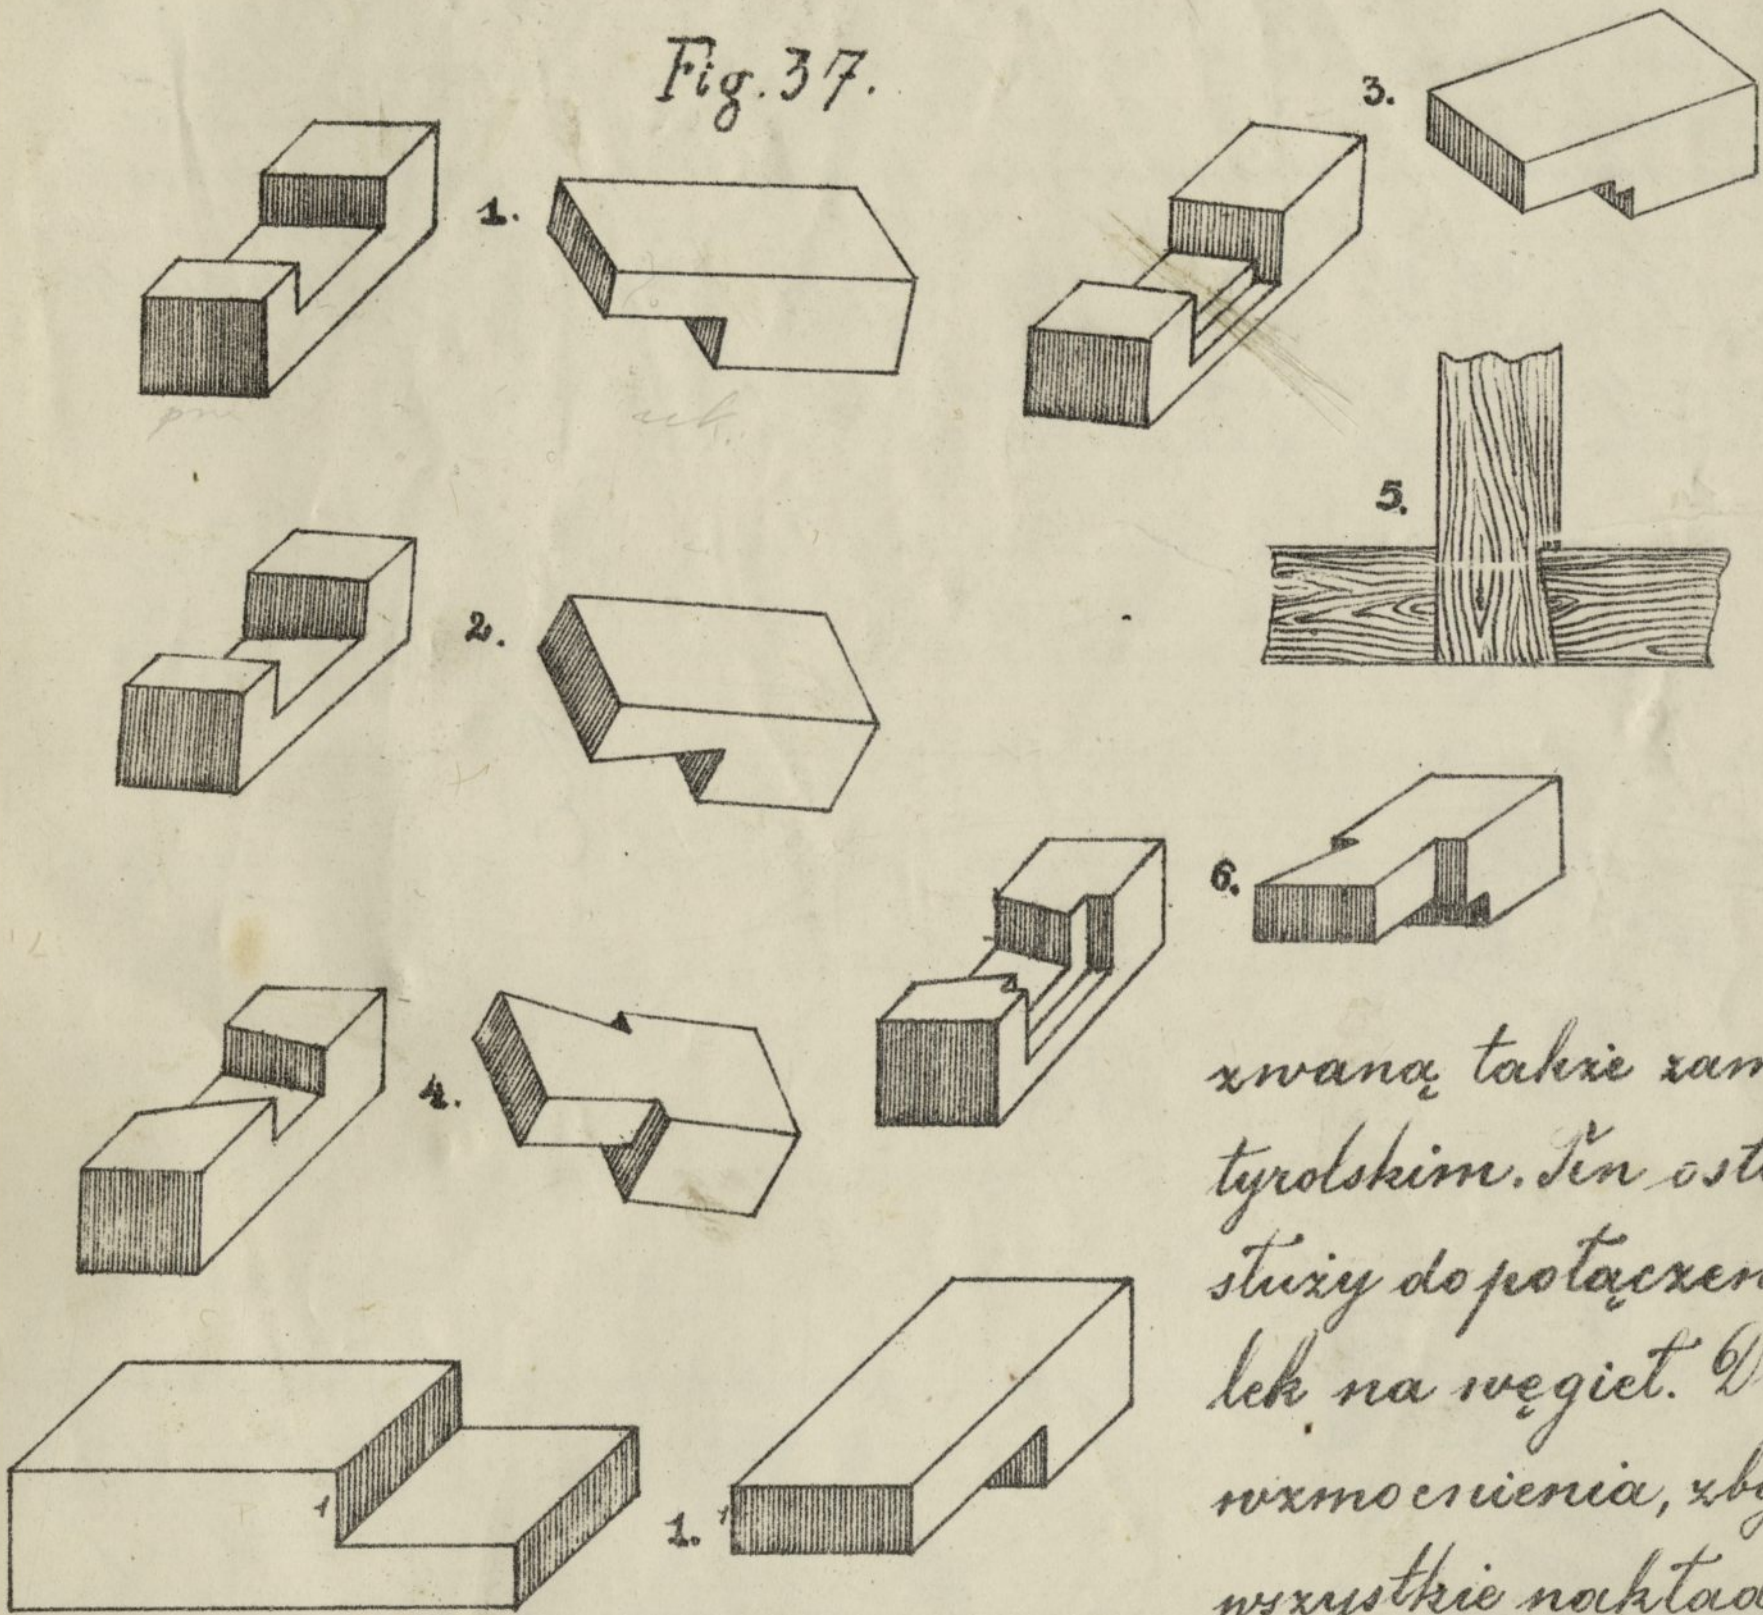 Fig. 37.
1.
3.
2.
5.
4.
6.
1
1.
zwaną także zam
tyrolskim. Ten ost
służy do połączen
lek na węgieł. D
wzmocnienia, zby
wszystkie nakład